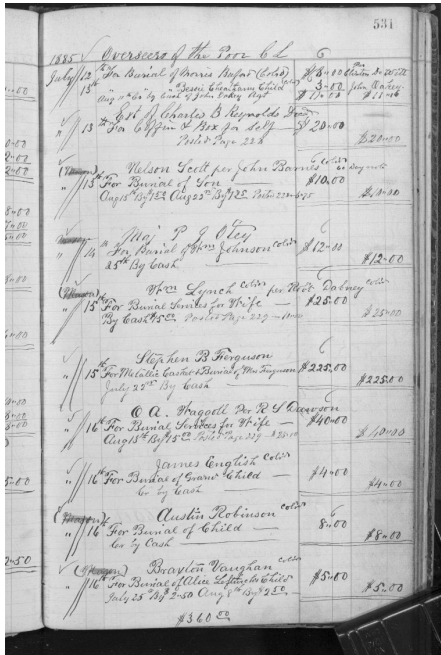 531
1885 Overseers of the Poor C L
July 12th For Burial of Morris Buford (Cold) $8.00
" 13th " " Bessie Cheatham Child 3.00
Aug 11th Cr by Cash of John Oakey Agt $11.00
Est of Charles B Reynolds Decd
" 13th For Coffin & Box for Self — $20.00
Posted Page 228 $20.00
Nelson Scott per John Barnes cold
" 15th For Burial of Son — $10.00
Aug 15th By Aug 22nd By Posted 228 $10.00
Maj P J Otey
" 14th For Burial of Wm Johnson cold $12.00
25th By Cash $12.00
Wm Lynch cold per Robt Dabney cold
" 15th For Burial Services for Wife — $25.00
By Cash $15.00 Posted Page 229 $25.00
Stephen B Ferguson
" 15th For Metallic Casket & Burial of Mrs Ferguson $225.00
July 27th By Cash $225.00
O A. Per R S Dawson
" 16th For Burial Services for Wife — $40.00
Aug 15th By $15.00 Posted Page 229 $40.00
James English cold
" 16th For Burial of Grand Child — $4.00
Cr by Cash $4.00
Austin Robinson cold
" 16th For Burial of Child — 8.00
Cr by Cash $8.00
Braxton Vaughan cold
" 16th For Burial of Alice Child $5.00
July 25th By $2.50 Aug 8th By $2.50 $5.00
$360.00